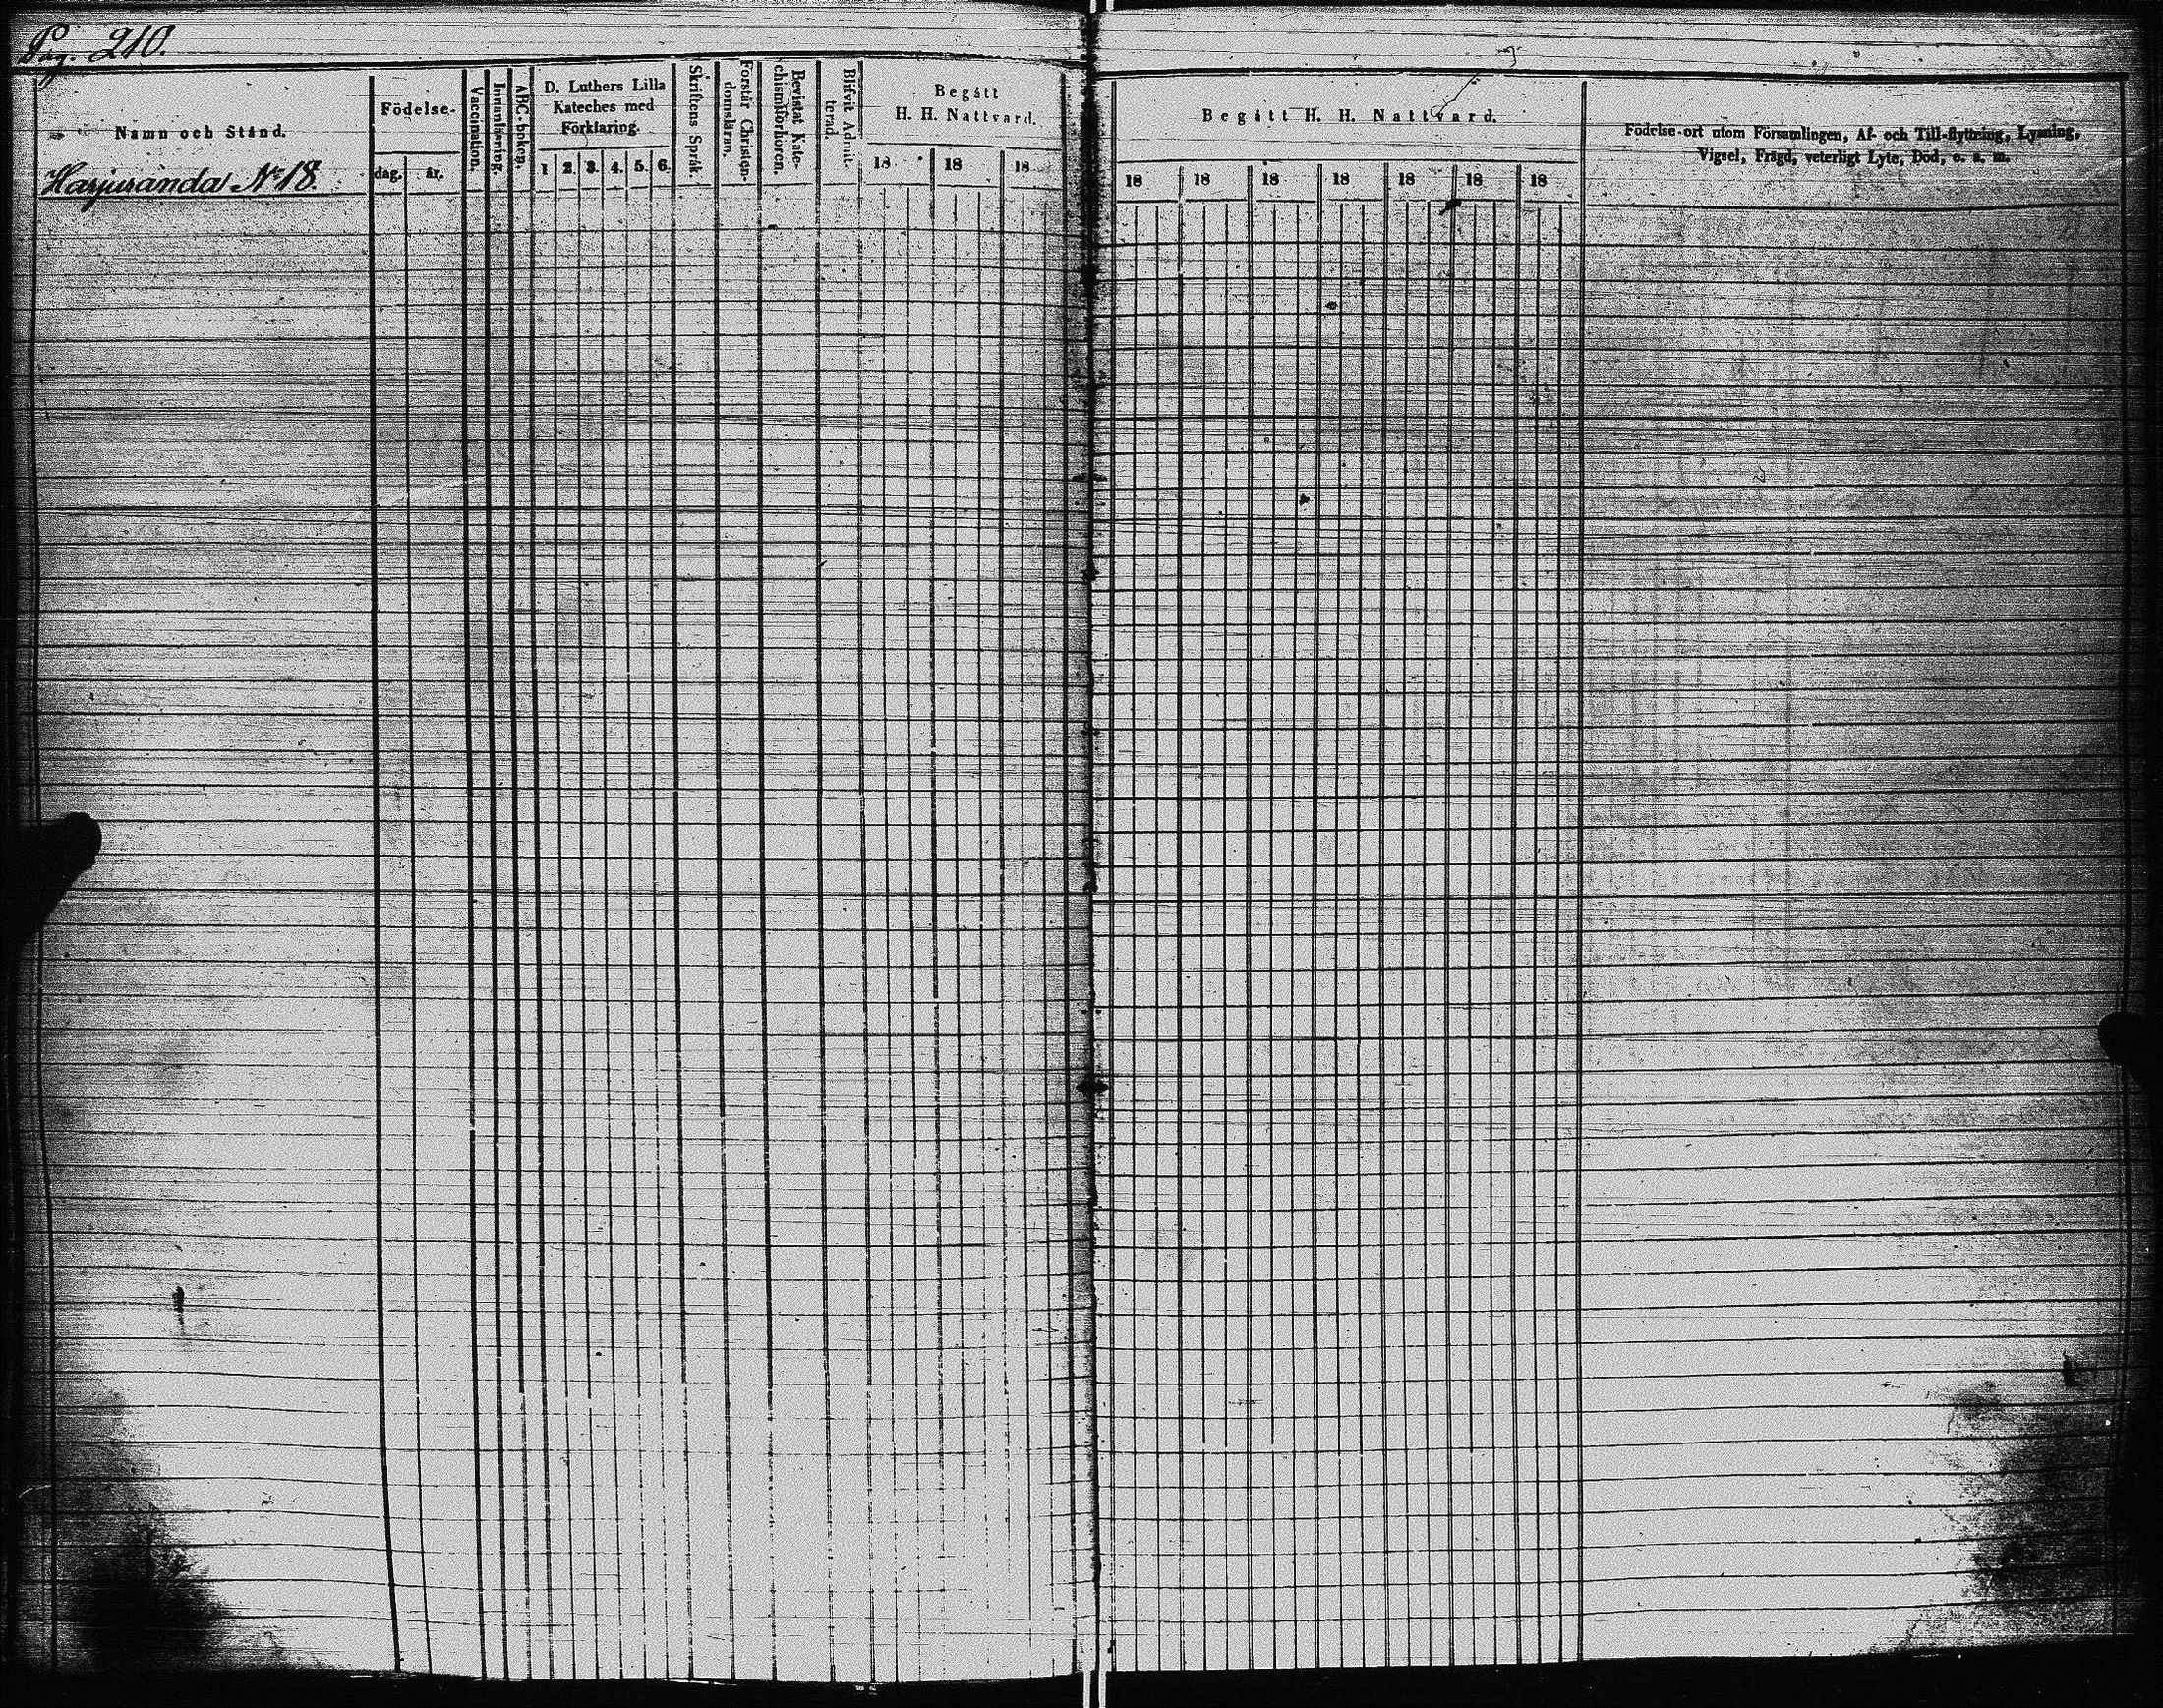 Pag. 210.
Namn och Stånd.
Harjuranda № 18.
Födelse-
dag.
år.
Vaccination.
Innanläsning.
ABC-boken.
D. Luthers Lilla
Kateches med
Förklaring.
1 2. 3. 4. 5. 6.
Skriftens Språk.
Förstår Christen-
domsläran.
Bevistat Kate-
chismiförhören.
Blifvit Admit-
terad.
Begått
H. H. Nattvard.
18 18 18
Begått H. H. Nattvard.
18 18 18 18 18 18 18
Födelse-ort utom Församlingen, Af- och Till-flyttning, Lysning,
Vigsel, Frägd, veterligt Lyte, Död, o. s. m.